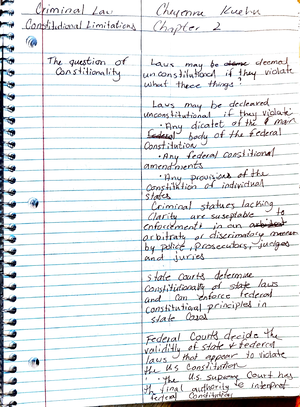 Criminal Law
Cheyenne Kuehn
Constitutional Limitations
Chapter 2
The question of
Constitionality
Laws may be deemed
unconstitutional if they violate
what three things?
Laws may be declared
unconstitutional if they violate:
• Any dicatet of the main
Federal body of the federal
Constitution
• Any federal constitional
amendments
• Any provisions of the
Constitution of individual
states
Criminal statues lacking
Clarity are suseptable to
enforcements in an
arbitraty or discriminatory manner
by police, prosecutors, judges
and juries
State Courts determine
Constitionally of state laws
and can enforce federal
constitutional principles in
state
Federal Courts decide the
validitly of state & federal
laws that appear to violate
the U.S Constitution
• The U.S. supreme Court has
the final authority to interpret
federal Constitution